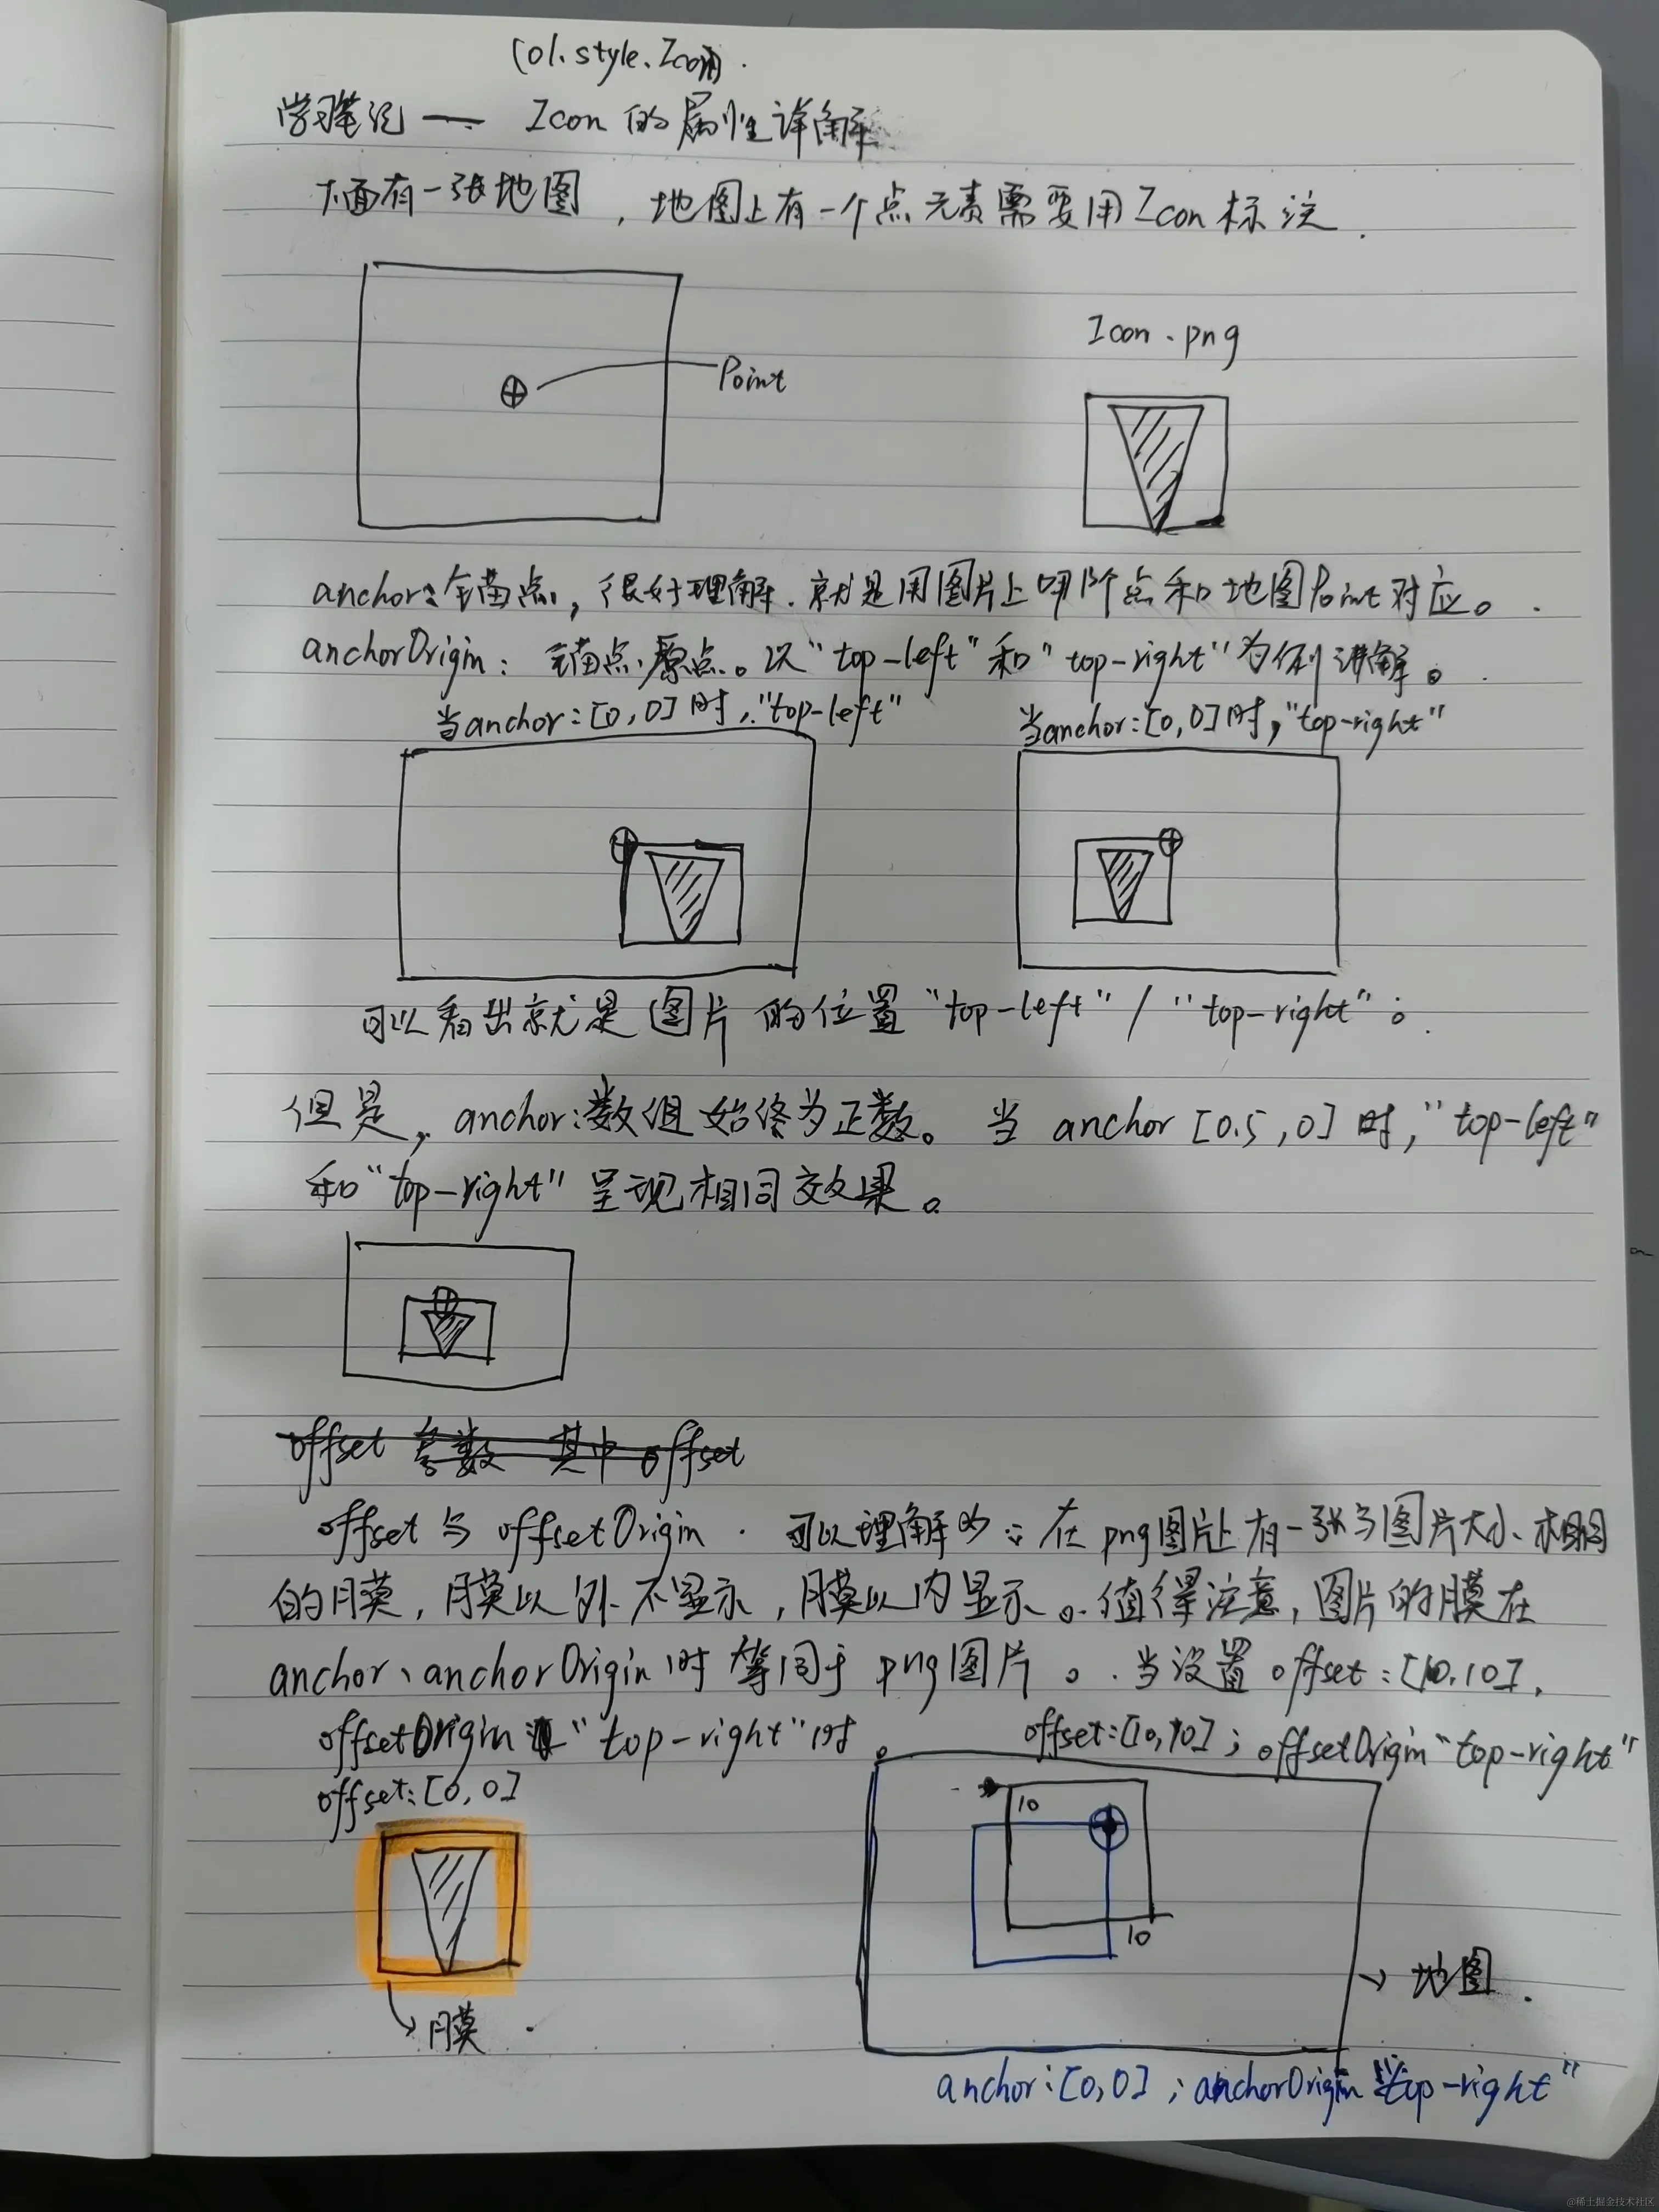 (ol.style.Icon用).
学习笔记 — Icon 的属性详解
下面有一张地图，地图上有一个点元素需要用Icon标注.
Point
Icon.png
anchor: 锚点，很好理解.就是用图片上哪个点和地图Point对应。
anchorOrigin: 锚点原点。以"top-left"和"top-right"为例讲解。
当anchor:[0,0]时,"top-left"
当anchor:[0,0]时,"top-right"
可以看出就是图片的位置"top-left" / "top-right"。
但是，anchor:数组始终为正数。当 anchor [0.5,0]时，"top-left"
和"top-right"呈现相同效果。
offset 参数 其中 offset
offset 与 offsetOrigin. 可以理解为：在png图片上有一张与图片大小相同
的膜，膜以外不显示，膜以内显示。值得注意，图片的膜在
anchor、anchorOrigin时等同于png图片。当设置 offset:[10,10],
offsetOrigin "top-right"时。
offset:[10,10]; offsetOrigin "top-right"
offset:[0,0]
10
10
膜.
→ 地图.
anchor:[0,0]; anchorOrigin "top-right"
@稀土掘金技术社区